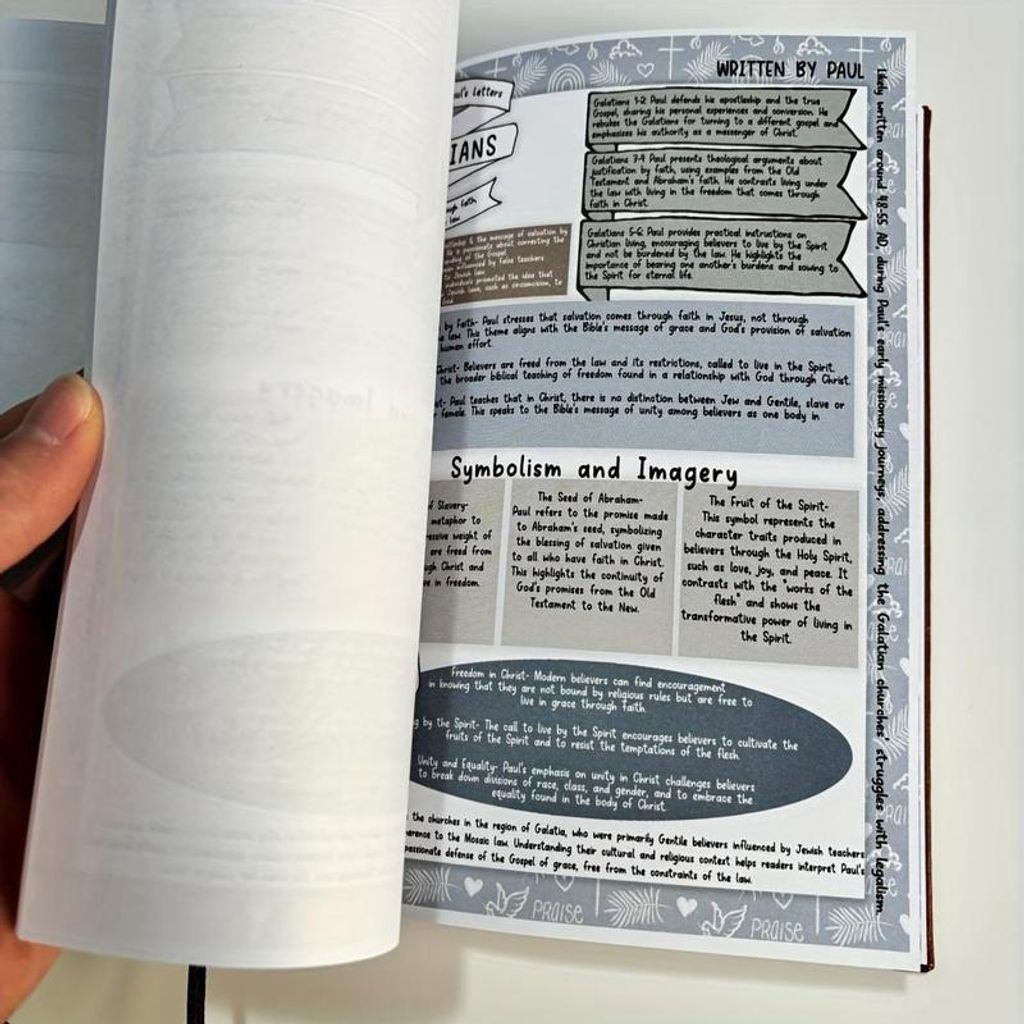 WRITTEN BY PAUL
Paul's letters
IANS
through faith
law
Galatians 1-2: Paul defends his apostleship and the true
Gospel, sharing his personal experiences and conversion. He
rebukes the Galatians for turning to a different gospel and
emphasizes his authority as a messenger of Christ.
Galatians 3-4 Paul presents theological arguments about
justification by faith, using examples from the Old
Testament and Abraham's faith. He contrasts living under
the law with living in the freedom that comes through
faith in Christ.
Galatians 5-6: Paul provides practical instructions on
Christian living, encouraging believers to live by the Spirit
and not be burdened by the law. He highlights the
importance of bearing one another's burdens and sowing to
the Spirit for eternal life.
& the message of salvation by
is passionate about correcting the
of the Gospel
influenced by false teachers
Jewish law
individuals promoted the idea that
Jewish laws, such as circumcision, to
by Faith- Paul stresses that salvation comes through faith in Jesus, not through
law. This theme aligns with the Bible's message of grace and God's provision of salvation
human effort.
Christ- Believers are freed from the law and its restrictions, called to live in the Spirit.
the broader biblical teaching of freedom found in a relationship with God through Christ.
Paul teaches that in Christ, there is no distinction between Jew and Gentile, slave or
female. This speaks to the Bible's message of unity among believers as one body in
Symbolism and Imagery
of Slavery-
metaphor to
weight of
are freed from
Christ and
in freedom.
The Seed of Abraham-
Paul refers to the promise made
to Abraham's seed, symbolizing
the blessing of salvation given
to all who have faith in Christ.
This highlights the continuity of
God's promises from the Old
Testament to the New.
The Fruit of the Spirit-
This symbol represents the
character traits produced in
believers through the Holy Spirit,
such as love, joy, and peace. It
contrasts with the "works of the
flesh" and shows the
transformative power of living in
the Spirit.
Freedom in Christ- Modern believers can find encouragement
in knowing that they are not bound by religious rules but are free to
live in grace through faith.
by the Spirit- The call to live by the Spirit encourages believers to cultivate the
fruits of the Spirit and to resist the temptations of the flesh.
Unity and Equality- Paul's emphasis on unity in Christ challenges believers
to break down divisions of race, class, and gender, and to embrace the
equality found in the body of Christ.
the churches in the region of Galatia, who were primarily Gentile believers influenced by Jewish teachers
to the Mosaic law. Understanding their cultural and religious context helps readers interpret Paul's
passionate defense of the Gospel of grace, free from the constraints of the law.
likely written around 48-55 AD, during Paul's early missionary journeys, addressing the Galatian churches' struggles with legalism.
PRAISE
PRAISE